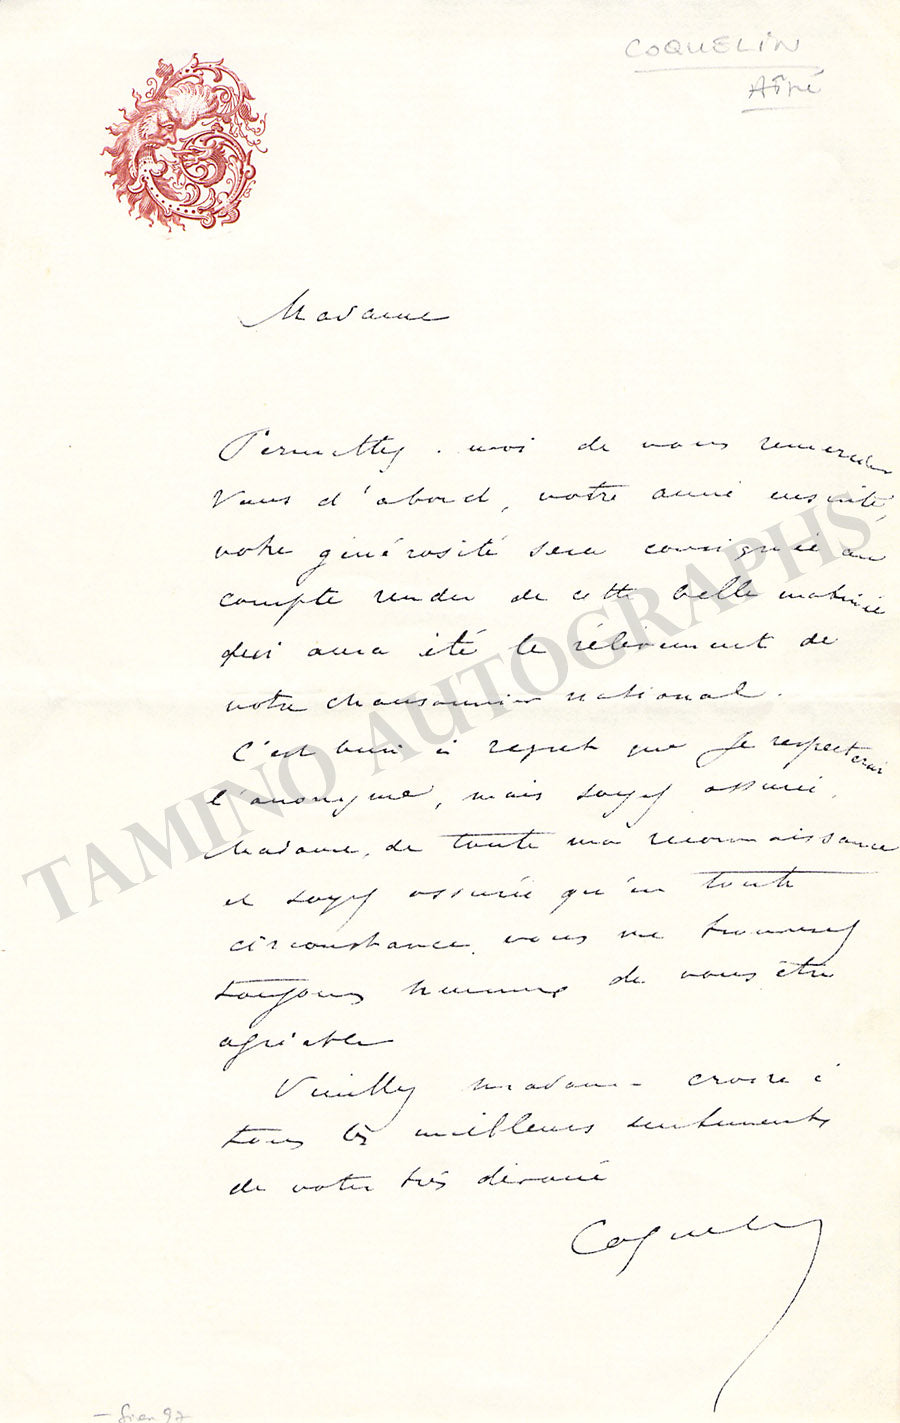 COQUELIN
Aîné
Madame
Permettez-moi de vous remercier
Vous d'abord, votre amie ensuite,
votre générosité sera consignée au
compte rendu de cette belle matinée
qui aura été le
de
votre chansonnier national.
C'est bien à regret que je respecterai
l'anonyme, mais soyez assurée,
Madame, de toute ma reconnaissance
et soyez assurée qu'en toute
circonstance, vous me trouverez
toujours heureux de vous être
agréable
Veuillez madame croire à
tous les meilleurs sentiments
de votre très dévoué
Coquelin
TAMINO AUTOGRAPHS